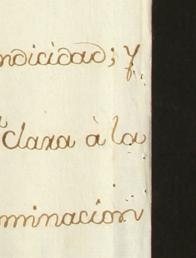 ndicidad; y
clara à la
minacion